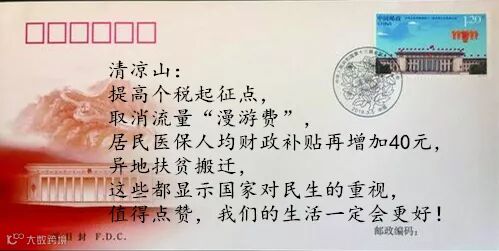 中国邮政
CHINA
1.20
清凉山：
提高个税起征点，
取消流量“漫游费”，
居民医保人均财政补贴再增加40元，
异地扶贫搬迁，
这些都显示国家对民生的重视，
值得点赞，我们的生活一定会更好！
封 F.D.C.
邮政编码：
大数跨境